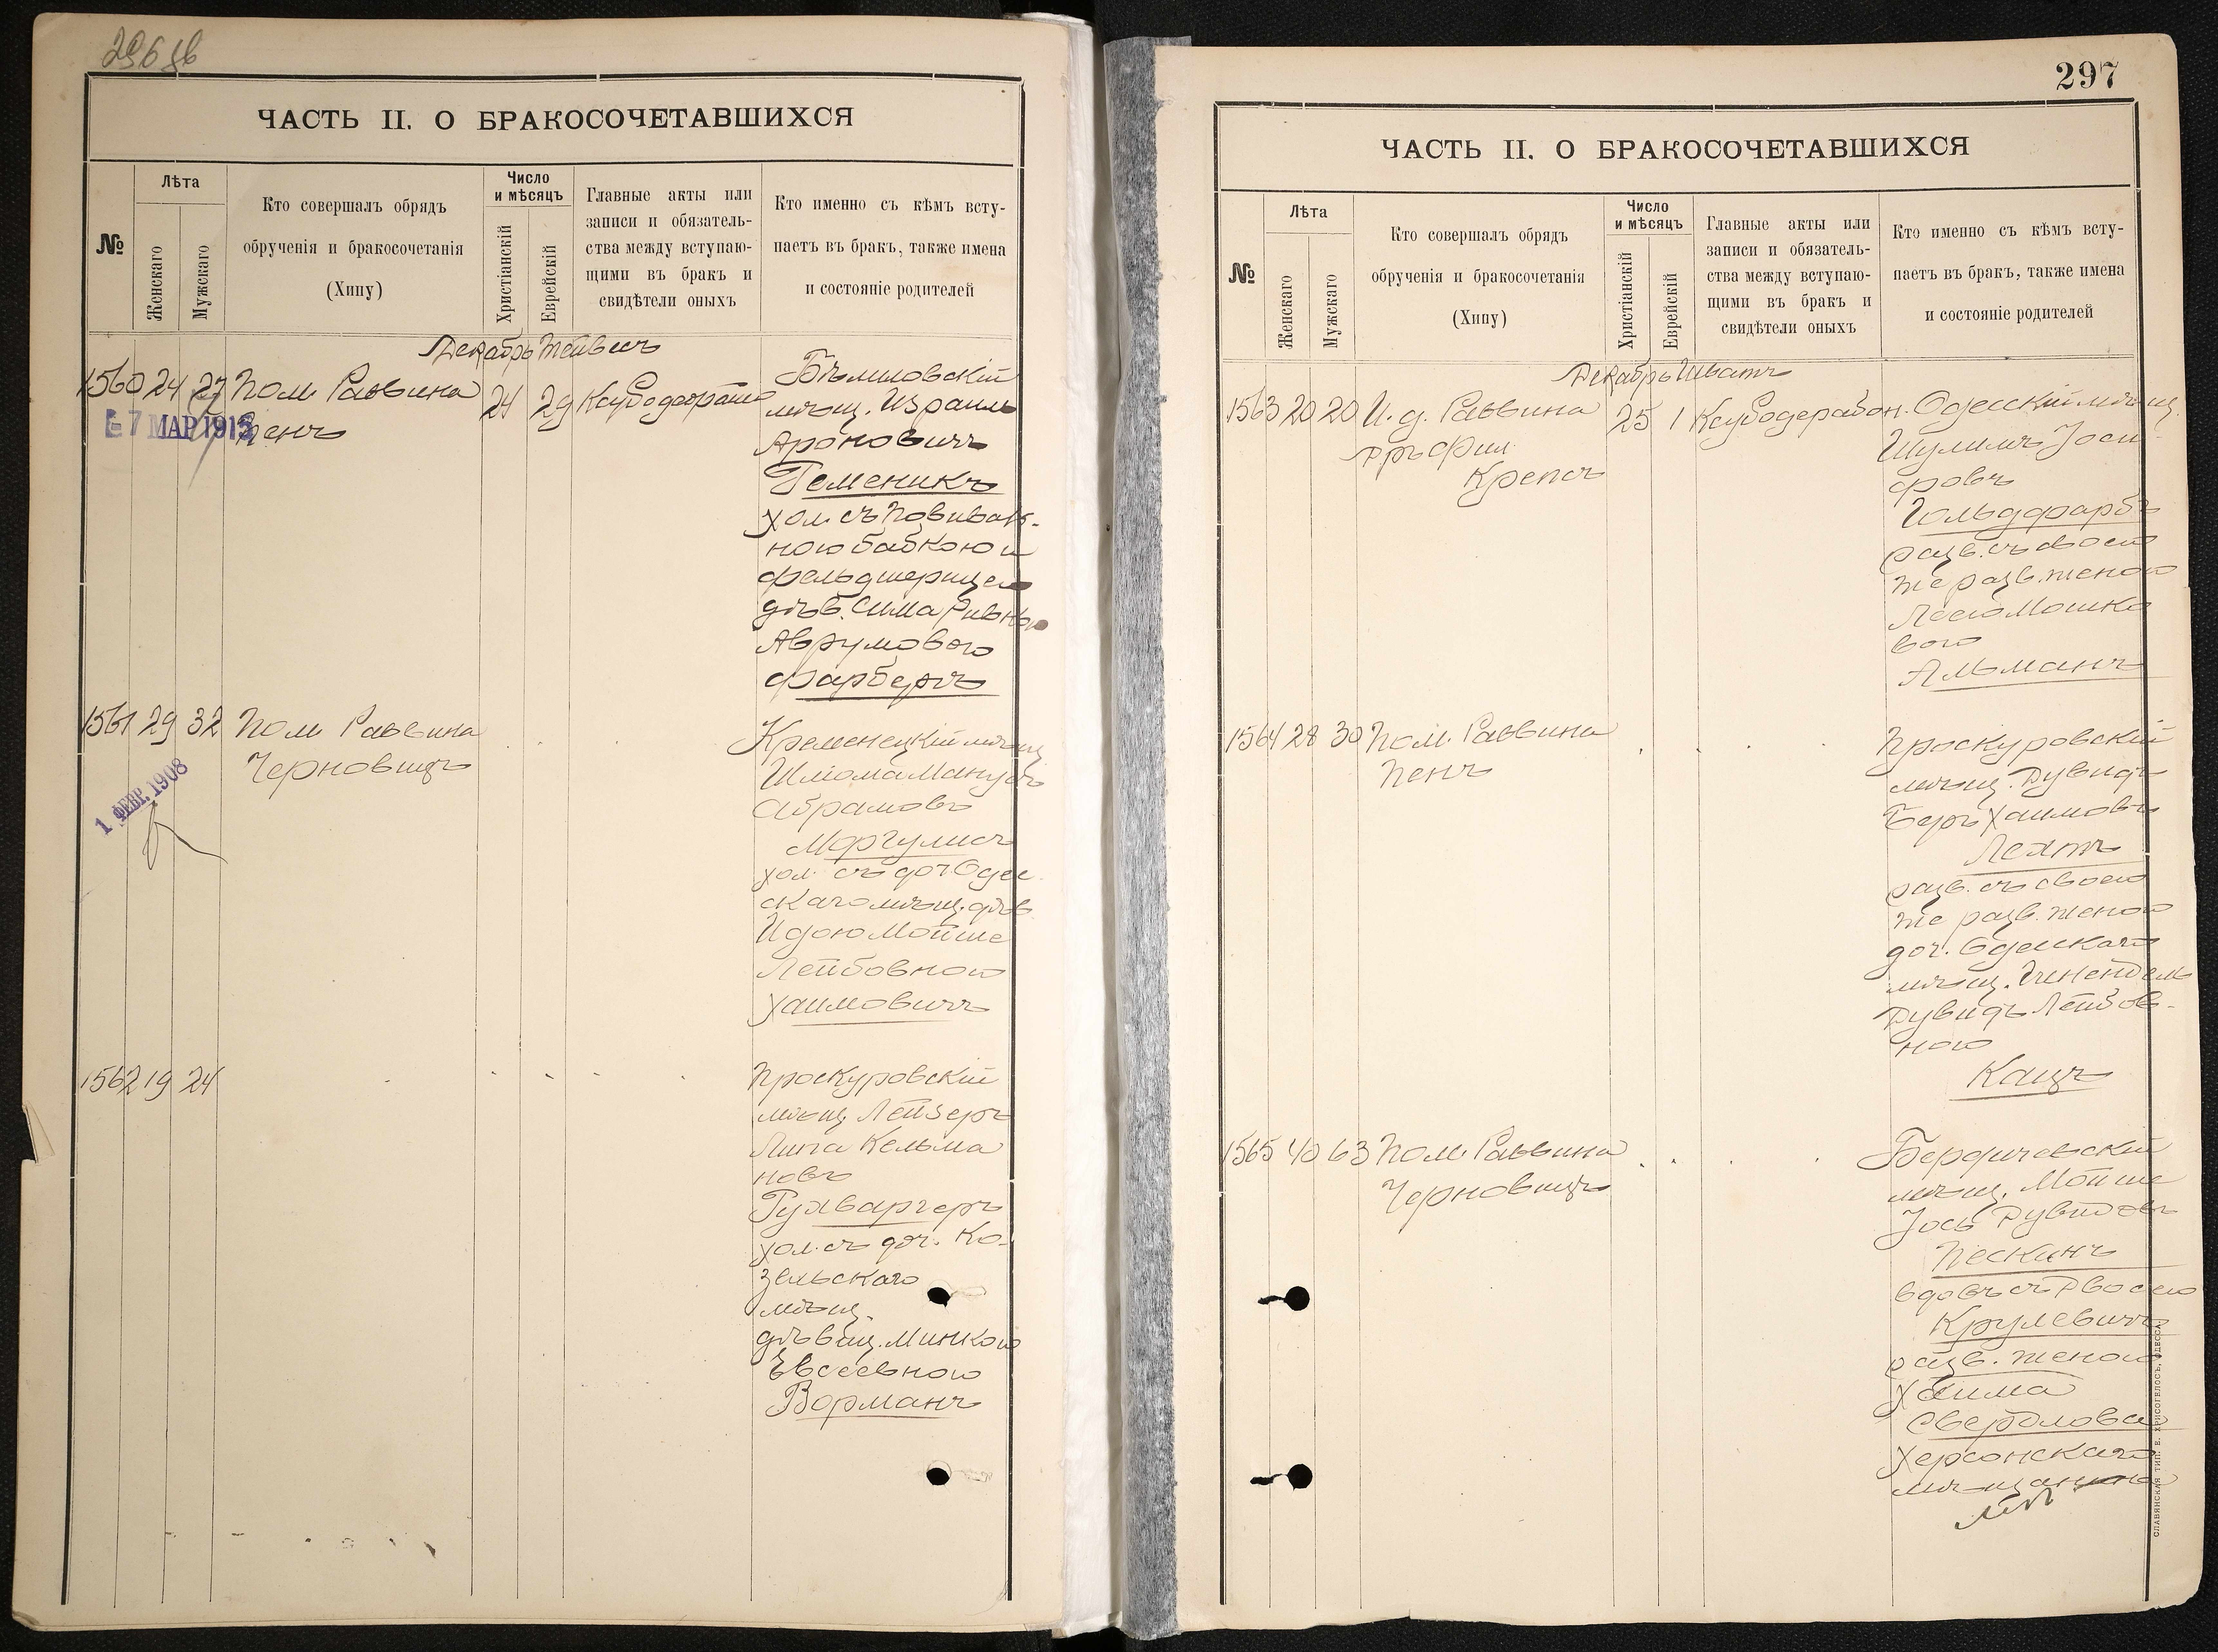 296 об
ЧАСТЬ II. О БРАКОСОЧЕТАВШИХСЯ
№
Лѣта
Женскаго
Мужскаго
Кто совершалъ обрядъ
обрученія и бракосочетанія
(Хипу)
Число
и мѣсяцъ
Христіанскій
Еврейскій
Главные акты или
записи и обязатель-
ства между вступаю-
щими въ бракъ и
свидѣтели оныхъ
Кто именно съ кѣмъ всту-
паетъ въ бракъ, также имена
и состояніе родителей
Декабрь Тейвесъ
1560 24 27 Пом. Раввина
Пенъ
24 29
7 МАР 1913
мѣщ. Израиль
Ароновичъ
Геменикъ
хол. съ повиваль-
ною бабкою и
фельдшерицею
дѣв. Сима Ривкою
Аврумовою
Фарберъ
1561 29 32 Пом. Раввина
Черновицъ
1 ФЕВР. 1908
Кременецкій мѣщ
Шлиома Манусъ
Абрамовъ
Маргулисъ
хол. съ доч. Одес
скаго мѣщ. дѣв.
Идою Мойше
Лейбовною
Хаимовичъ
1562 19 24
Проскуровскій
мѣщ. Лейзеръ
Липа Кельма
новъ
Гухваргеръ
хол. съ доч. Ко-
зельскаго
мѣщ.
дѣвиц. Минкою
Евсеевною
Ворманъ
297
ЧАСТЬ II. О БРАКОСОЧЕТАВШИХСЯ
№
Лѣта
Женскаго
Мужскаго
Кто совершалъ обрядъ
обрученія и бракосочетанія
(Хипу)
Число
и мѣсяцъ
Христіанскій
Еврейскій
Главные акты или
записи и обязатель-
ства между вступаю-
щими въ бракъ и
свидѣтели оныхъ
Кто именно съ кѣмъ всту-
паетъ въ бракъ, также имена
и состояніе родителей
Декабрь Шватъ
1563 20 20 И. д. Раввина
Дръ Фил.
Крепсъ
25 1
Одесскій мѣщ.
Шулимъ Іоси-
фовъ
Гольдфарбъ
разв. съ своею
же разв. женою
Леею Мошко
вою
Альманъ
1564 28 30 Пом. Раввина
Пенъ
Проскуровскій
мѣщ. Дувидъ
Беръ Хаимовъ
Лехтъ
разв. съ своею
же разв. женою
доч. Одесскаго
мѣщ. Эненендель
Дувидъ Лейбов-
ною
Кацъ
1565 40 63 Пом. Раввина
Черновицъ
Бердичевскій
мѣщ. Мойше
Іось Дувидовъ
Пескинъ
вдовъ съ Двосею
Крулевичъ
разв. женою
Хаима
Свердлова
Херсонскаго
мѣщанина
СЛАВЯНСКАЯ ТИП. Е. ХРИСОГЕЛОСЪ, ОДЕССА.